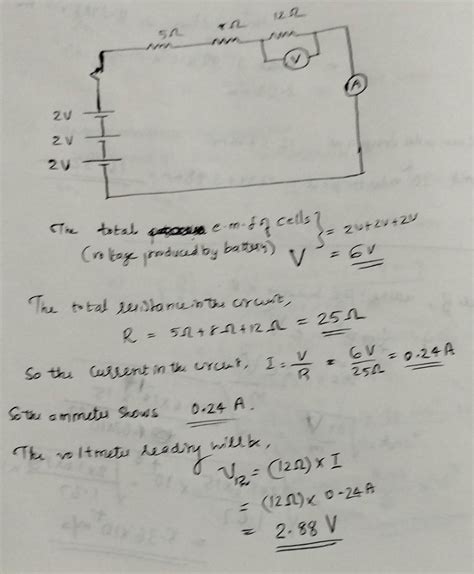 5Ω 8Ω 12Ω
V
A
2V
2V
2V
The total e.m.f of cells } = 2V+2V+2V
(voltage produced by battery) V = 6V
The total resistance in the circuit,
R = 5Ω+8Ω+12Ω = 25Ω
So the current in the circuit, I = V/R = 6V/25Ω = 0.24A
So the ammeter shows 0.24 A.
The voltmeter reading will be,
V₁₂ = (12Ω) × I
= (12Ω) × 0.24A
= 2.88 V